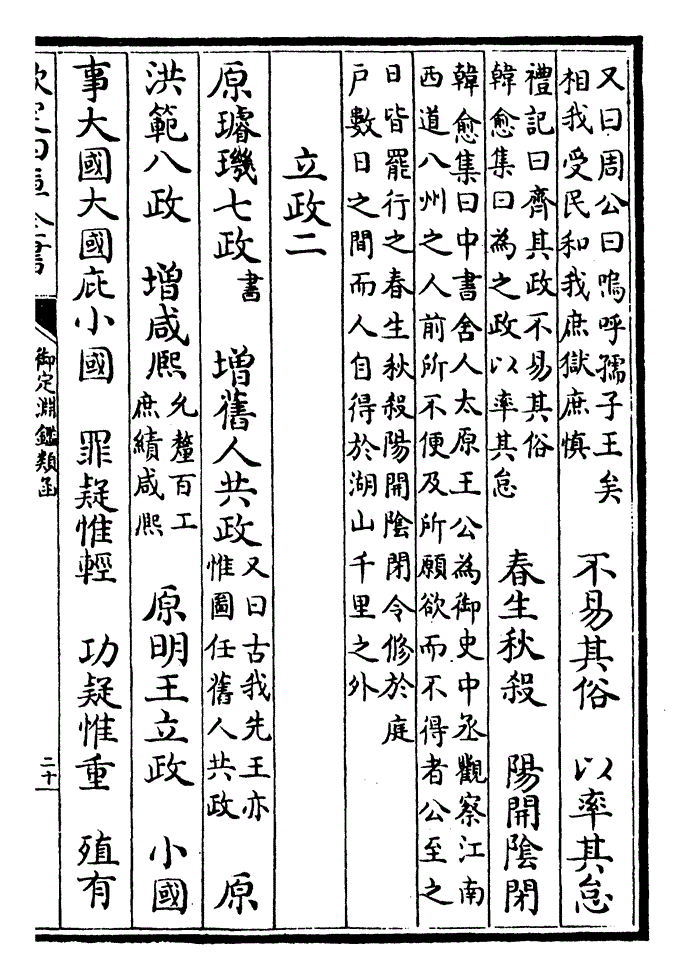 又曰周公曰嗚呼孺子王矣
相我受民和我庶獄庶慎
不易其俗　以率其怠
禮記曰齊其政不易其俗
韓愈集曰為之政以率其怠
春生秋殺　陽開陰閉
韓愈集曰中書舍人太原王公為御史中丞觀察江南
西道八州之人前所不便及所願欲而不得者公至之
日皆罷行之春生秋殺陽開陰閉令修於庭
户數日之間而人自得於湖山千里之外
立政二
原璿璣七政　書　增舊人共政
又曰古我先王亦
惟圖任舊人共政
原
洪範八政　增咸熙
允釐百工
庶績咸熙
原明王立政　小國
事大國大國庇小國　罪疑惟輕　功疑惟重　殖有
欽定四庫全書
御定淵鑑類函
二十一